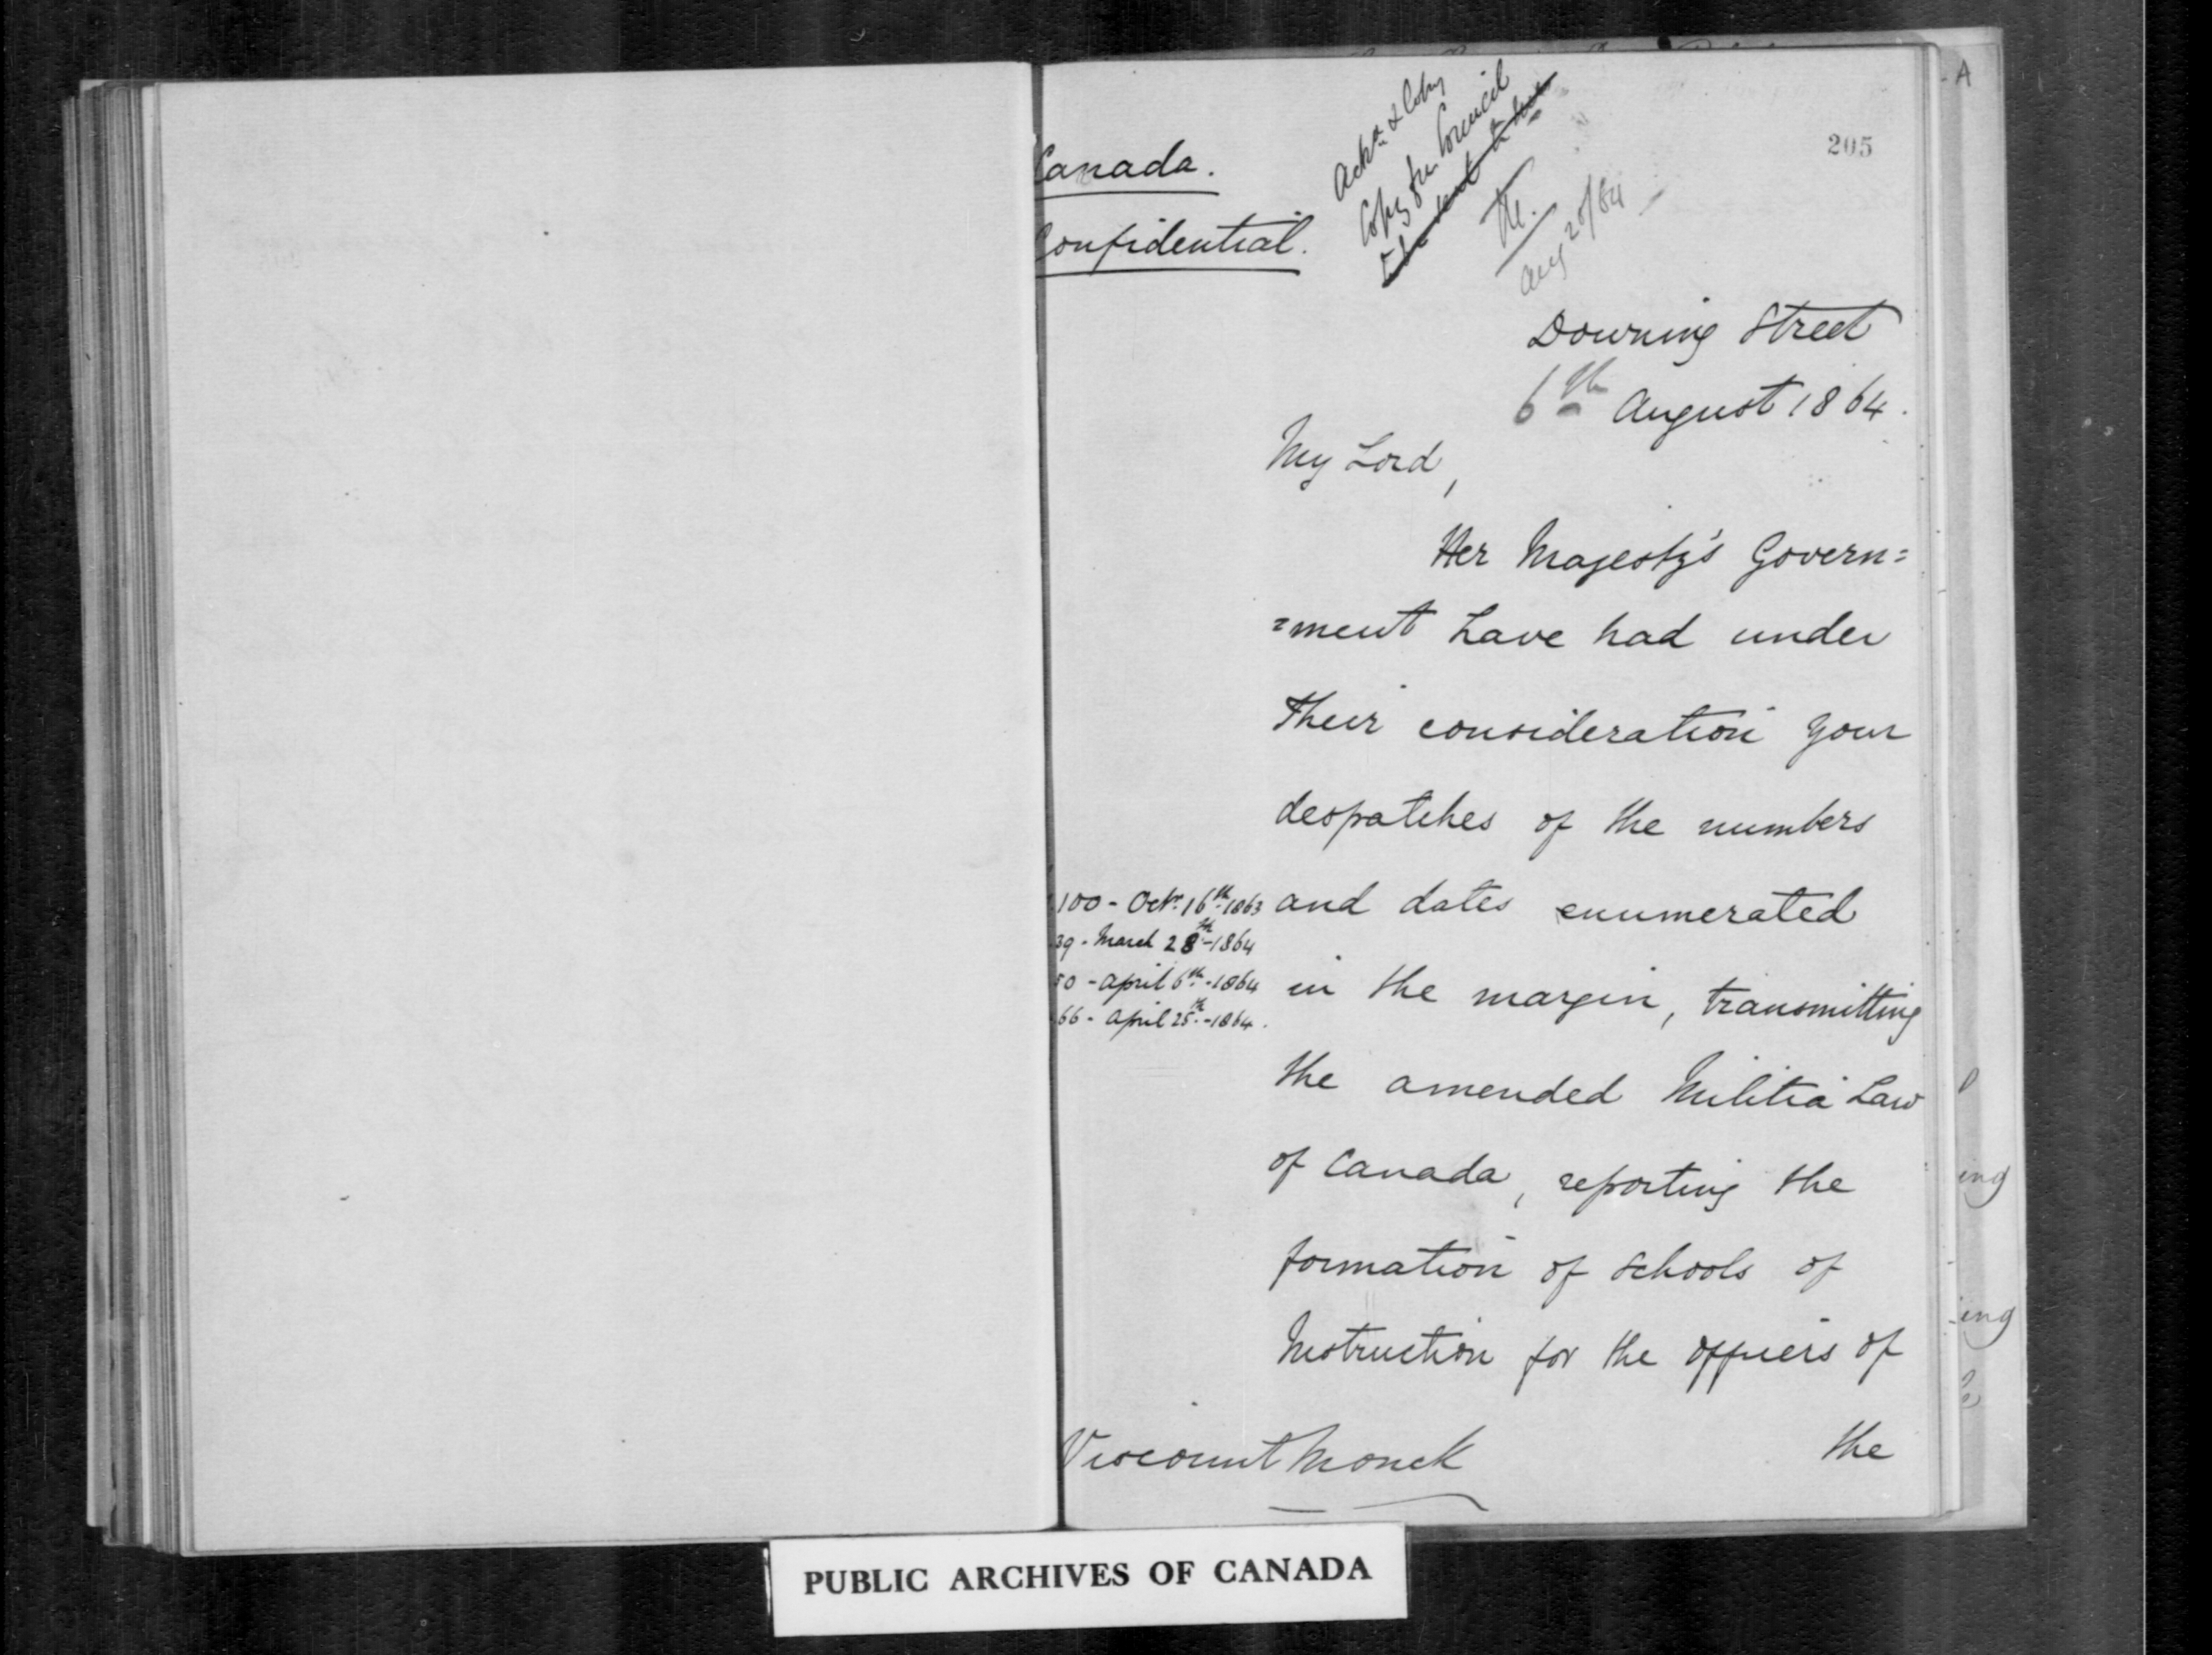 205
Canada.
Confidential.
Ackd & Copy
Copy for Council
Aug 20/64
Downing Street
6th August 1864.
My Lord,
Her Majesty's Govern=
=ment have had under
their consideration your
despatches of the numbers
100 - Octr. 16th 1863
39 - March 28th - 1864
50 - April 6th - 1864
66 - April 25th - 1864.
and dates enumerated
in the margin, transmitting
the amended Militia Law
of Canada, reporting the
formation of Schools of
Instruction for the Officers of
Viscount Monck
the
A
ing
ing
PUBLIC ARCHIVES OF CANADA